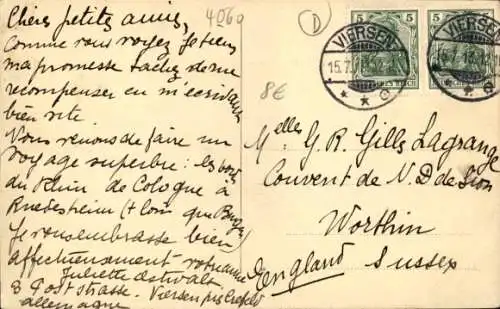 Chères petites amies,
Comme vous voyez je tiens
ma promesse tachez de me
recompenser en m'ecrivant
bien vite.
Vous venons de faire un
voyage superbe: les bords
du Rhin de Cologne à
Ruedesheim (+ loin que Bingen
Je vous embrasse bien
affectueusement votre amie
Juliette
3 Poststrasse. Viersen prez Crefeld
allemagne
4060
D
8€
5
5
VIERSEN
15.7.
VIERSEN
Melles G. R. Gills Lagrange
Couvent de N. D de Sion
Worthin
England Sussex